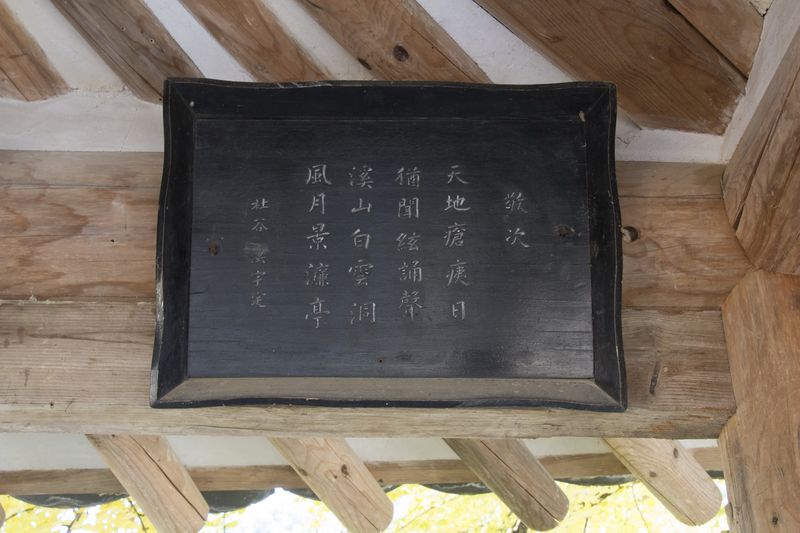 敬次
天地瘡痍日
猶聞絃誦聲
溪山白雲洞
風月景濂亭
社谷